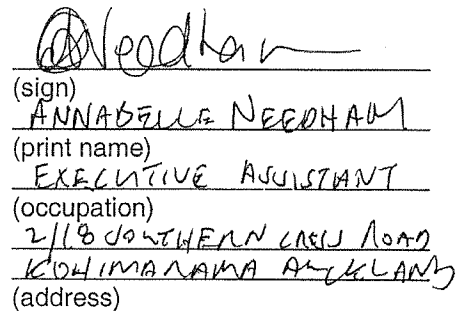 ANeedham
(sign)
ANNABELLE NEEDHAM
(print name)
EXECUTIVE ASSISTANT
(occupation)
2/18 SOUTHERN CROSS ROAD
KOHIMARAMA AUCKLAND
(address)